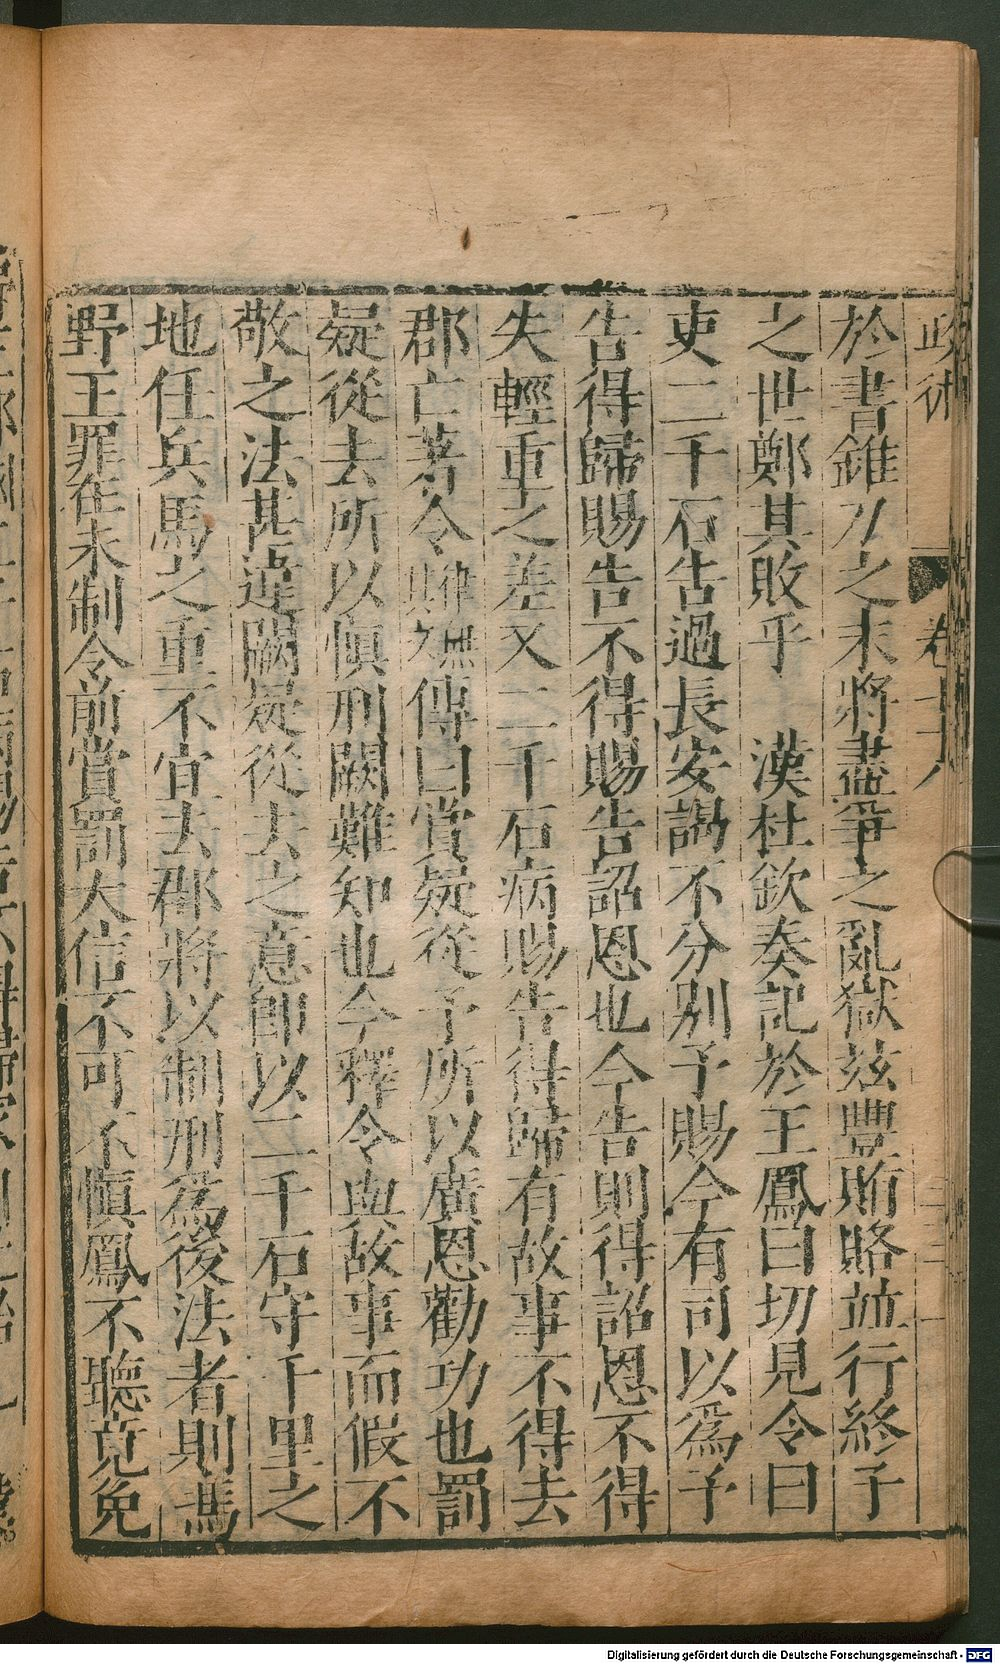 政術 卷十八
於書錐刀之末將盡爭之亂獄玆豐賄賂並行終子
之世鄭其敗乎 漢杜欽奏記於王鳳曰切見令曰
吏二千石告過長安謁不分別予賜今有司以爲予
告得歸賜告不得賜告詔恩也今告則得詔恩不得
失輕重之差又二千石病賜告得歸有故事不得去
郡亡著令傳曰賞疑從予所以廣恩勸功也罰
疑從去所以愼刑闕難知也今釋令與故事而假不
敬之法甚違闕疑從去之意卽以二千石守千里之
地任兵馬之重不宜去郡將以制刑爲後法者則馮
野王罪在未制令前賞罰大信不可不愼鳳不聽竟免
Digitalisierung gefördert durch die Deutsche Forschungsgemeinschaft - DFG